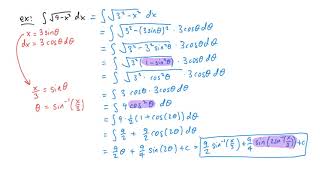 ex: ∫√(9-x²) dx = ∫√(3²-x²) dx
x = 3sinθ
dx = 3cosθdθ
= ∫√(3²-(3sinθ)²) · 3cosθdθ
= ∫√(3²-3²sin²θ) · 3cosθdθ
= ∫√(3²(1-sin²θ)) · 3cosθdθ
= ∫√(3²·cos²θ) · 3cosθ dθ
x/3 = sinθ
θ = sin⁻¹(x/3)
= ∫ 3 cosθ · 3cosθ dθ
= ∫ 9 cos²θ dθ
= ∫ 9·½(1+cos(2θ)) dθ
= ∫ 9/2 + 9/2 cos(2θ) dθ
= 9/2 θ + 9/4 sin(2θ) + C = 9/2 sin⁻¹(x/3) + 9/4 sin(2sin⁻¹(x/3)) + C